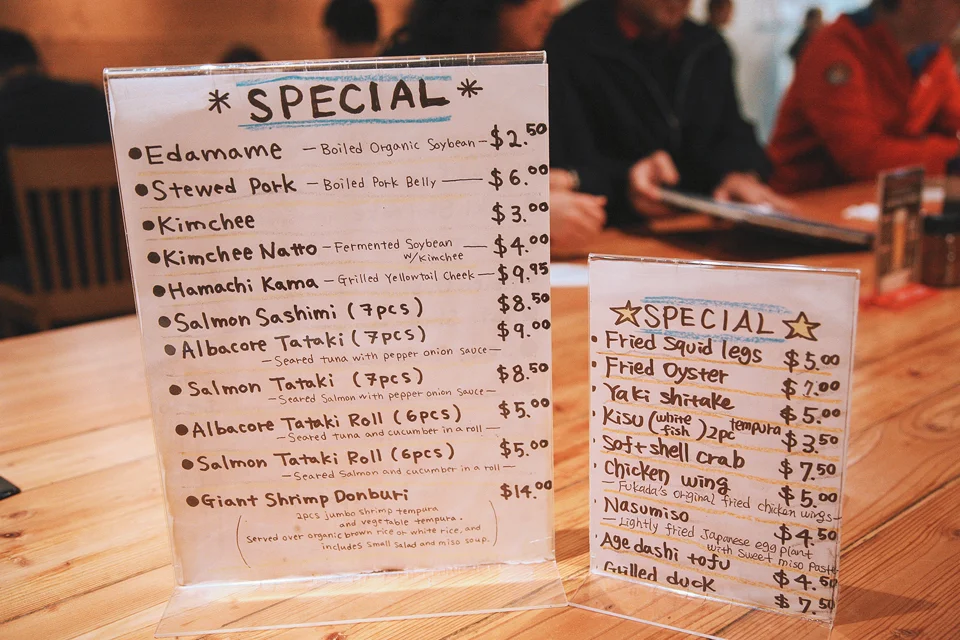 * SPECIAL *
• Edamame — Boiled Organic Soybean — $2.50
• Stewed Pork — Boiled Pork Belly — $6.00
• Kimchee $3.00
• Kimchee Natto — Fermented Soybean — $4.00
w/Kimchee
• Hamachi Kama — Grilled Yellowtail Cheek — $9.95
• Salmon Sashimi (7pcs) $8.50
• Albacore Tataki (7pcs) $9.00
— Seared tuna with pepper onion sauce —
• Salmon Tataki (7pcs) $8.50
— Seared Salmon with pepper onion sauce —
• Albacore Tataki Roll (6pcs) $5.00
— Seared tuna and cucumber in a roll —
• Salmon Tataki Roll (6pcs) $5.00
— Seared Salmon and cucumber in a roll —
• Giant Shrimp Donburi $14.00
(2pcs jumbo shrimp tempura
and vegetable tempura.
Served over organic brown rice or white rice. and
includes small salad and miso soup.)
☆ SPECIAL ☆
• Fried Squid legs $5.00
• Fried Oyster $7.00
• Yaki shitake $5.00
• Kisu (white fish) 2pc tempura $3.50
• Soft shell crab $7.50
• Chicken wing $5.00
— Fukada's original fried chicken wings —
• Nasumiso $4.50
— Lightly fried Japanese egg plant
with sweet miso paste
• Agedashi tofu $4.50
Grilled duck $7.50